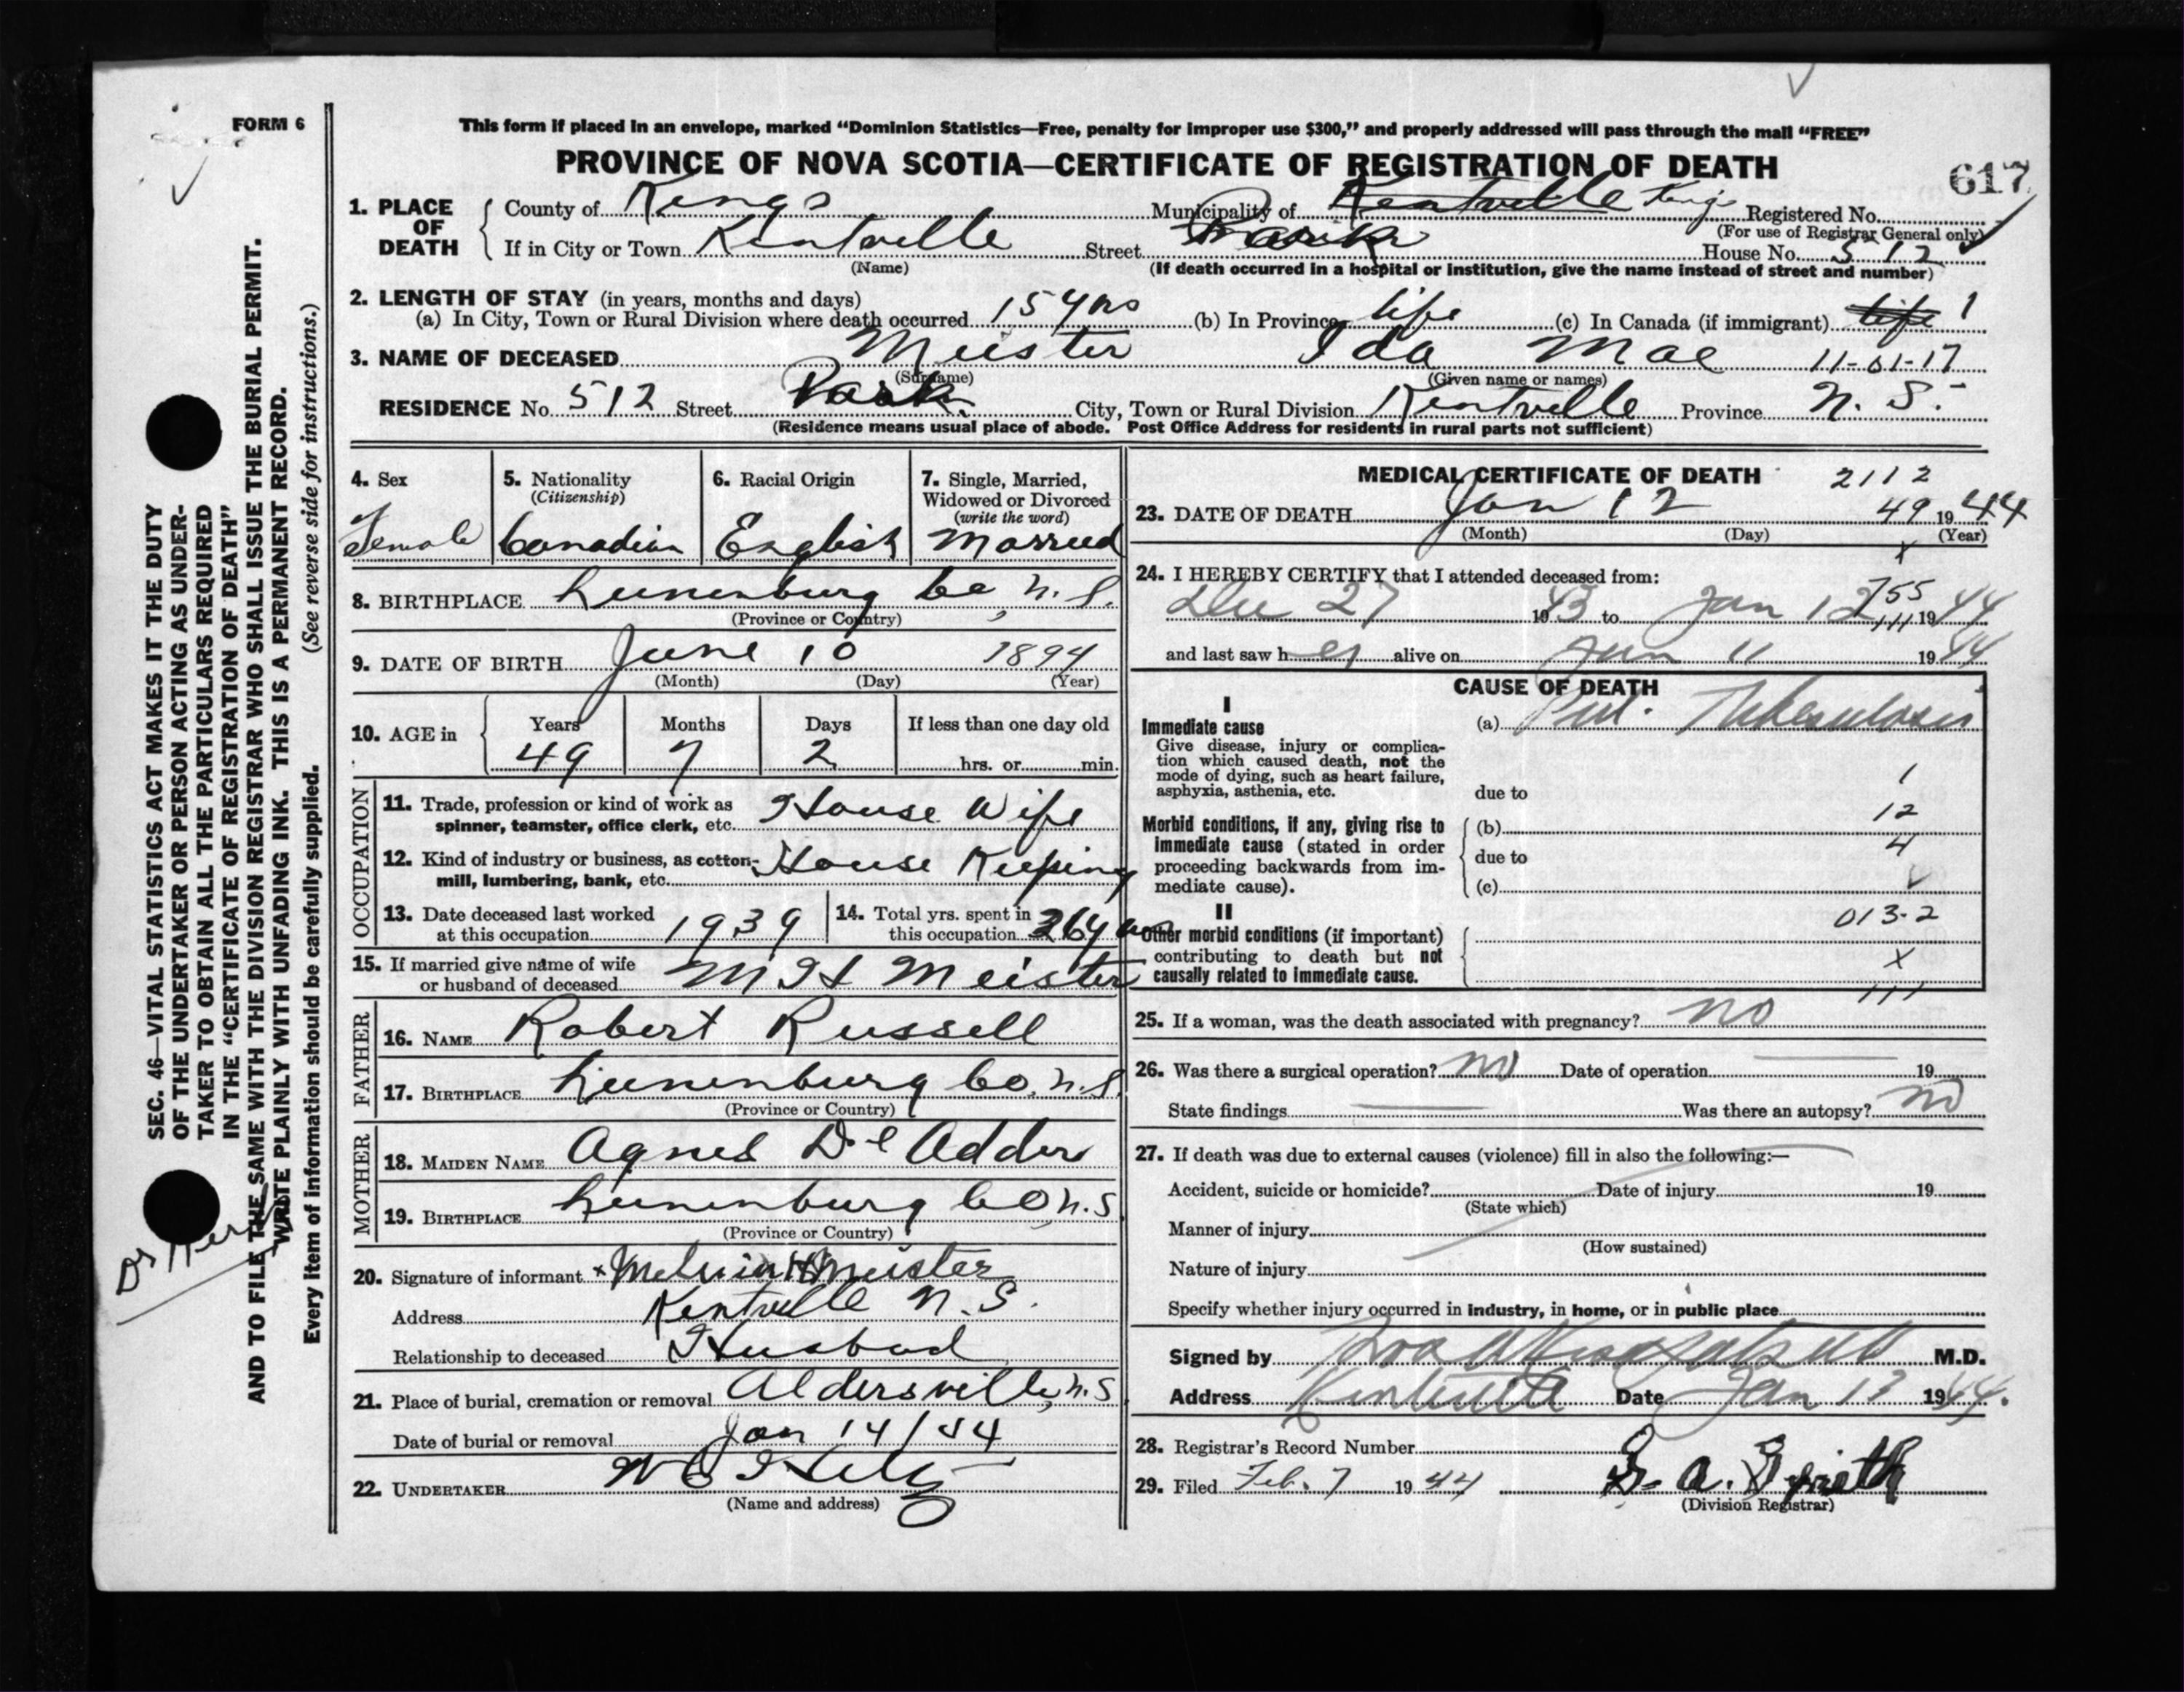 FORM 6
This form if placed in an envelope, marked “Dominion Statistics—Free, penalty for improper use $300,” and properly addressed will pass through the mail “FREE”
PROVINCE OF NOVA SCOTIA—CERTIFICATE OF REGISTRATION OF DEATH
617
1. PLACE OF DEATH County of Kings Municipality of Kentville Kings Registered No.
(For use of Registrar General only)
If in City or Town Kentville Street Park House No. 512
(Name) (If death occurred in a hospital or institution, give the name instead of street and number)
2. LENGTH OF STAY (in years, months and days)
(a) In City, Town or Rural Division where death occurred 15 yrs (b) In Province life (c) In Canada (if immigrant) life 1
3. NAME OF DECEASED Meister Ida Mae 11-01-17
(Surname) (Given name or names)
RESIDENCE No. 512 Street Park City, Town or Rural Division Kentville Province N. S.
(Residence means usual place of abode. Post Office Address for residents in rural parts not sufficient)
4. Sex Female
5. Nationality (Citizenship) Canadian
6. Racial Origin English
7. Single, Married, Widowed or Divorced (write the word) Married
8. BIRTHPLACE Lunenburg Co, N.S.
(Province or Country)
9. DATE OF BIRTH June 10 1894
(Month) (Day) (Year)
10. AGE in Years 49 Months 7 Days 2 If less than one day old
hrs. or min.
OCCUPATION
11. Trade, profession or kind of work as spinner, teamster, office clerk, etc. House Wife
12. Kind of industry or business, as cotton-mill, lumbering, bank, etc. House Keeping
13. Date deceased last worked at this occupation 1939
14. Total yrs. spent in this occupation 26 yrs
15. If married give name of wife or husband of deceased M H Meister
FATHER
16. NAME Robert Russell
17. BIRTHPLACE Lunenburg Co, N.S.
(Province or Country)
MOTHER
18. MAIDEN NAME Agnes De Adder
19. BIRTHPLACE Lunenburg Co, N.S
(Province or Country)
20. Signature of informant x Melvin H Meister
Address Kentville N.S.
Relationship to deceased Husbad
21. Place of burial, cremation or removal Aldersville, N.S
Date of burial or removal Jan 14/44
22. UNDERTAKER
(Name and address)
MEDICAL CERTIFICATE OF DEATH 2112
23. DATE OF DEATH Jan 12 49 1944
(Month) (Day) (Year)
x
24. I HEREBY CERTIFY that I attended deceased from:
Dec 27 1943 to Jan 12 1944
and last saw her alive on Jan 11 1944
CAUSE OF DEATH
I
Immediate cause (a) Pul. Tuberculosis
Give disease, injury or complication which caused death, not the mode of dying, such as heart failure, asphyxia, asthenia, etc.
1
due to
12
Morbid conditions, if any, giving rise to immediate cause (stated in order proceeding backwards from immediate cause).
(b)
4
due to
(c)
II
013-2
Other morbid conditions (if important) contributing to death but not causally related to immediate cause.
x
111
25. If a woman, was the death associated with pregnancy? no
26. Was there a surgical operation? no Date of operation 19
State findings Was there an autopsy? no
27. If death was due to external causes (violence) fill in also the following:—
Accident, suicide or homicide? Date of injury 19
(State which)
Manner of injury
(How sustained)
Nature of injury
Specify whether injury occurred in industry, in home, or in public place
Signed by M.D.
Address Kentville Date Jan 13 1944.
28. Registrar's Record Number
29. Filed Feb. 7 1944
(Division Registrar)
SEC. 46—VITAL STATISTICS ACT MAKES IT THE DUTY
OF THE UNDERTAKER OR PERSON ACTING AS UNDER-
TAKER TO OBTAIN ALL THE PARTICULARS REQUIRED
IN THE “CERTIFICATE OF REGISTRATION OF DEATH”
AND TO FILE THE SAME WITH THE DIVISION REGISTRAR WHO SHALL ISSUE THE BURIAL PERMIT.
WRITE PLAINLY WITH UNFADING INK. THIS IS A PERMANENT RECORD.
Every item of information should be carefully supplied. (See reverse side for instructions.)